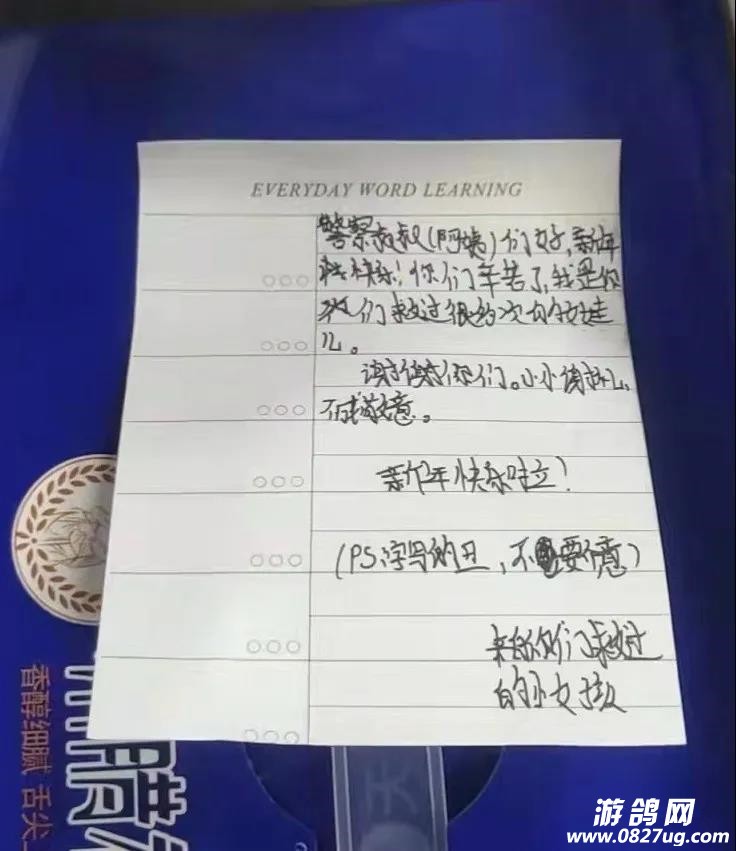 EVERYDAY WORD LEARNING
警察叔叔(阿姨)们好,新年
快乐!你们辛苦了,我是你
们救过很多次的女娃
儿。
谢谢你们。小小谢礼,
不成敬意。
新年快乐哇!
(PS:字写的丑,不要介意)
来自你们救过
的小女孩
香醇细腻 舌尖
腊
天
游鸽网
www.0827ug.com